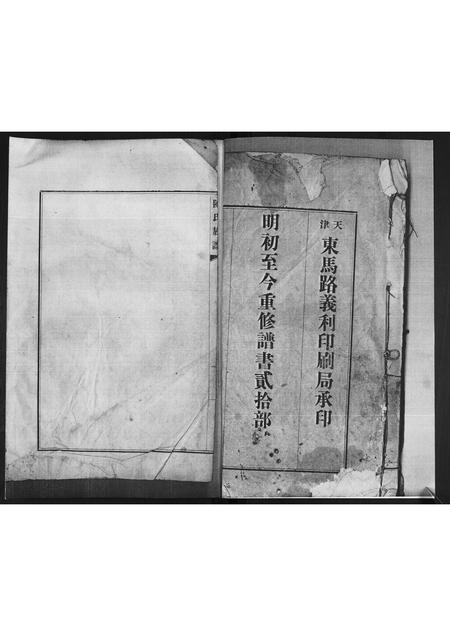 天津
東馬路義利印刷局承印
明初至今重修譜書貳拾部
氏族譜